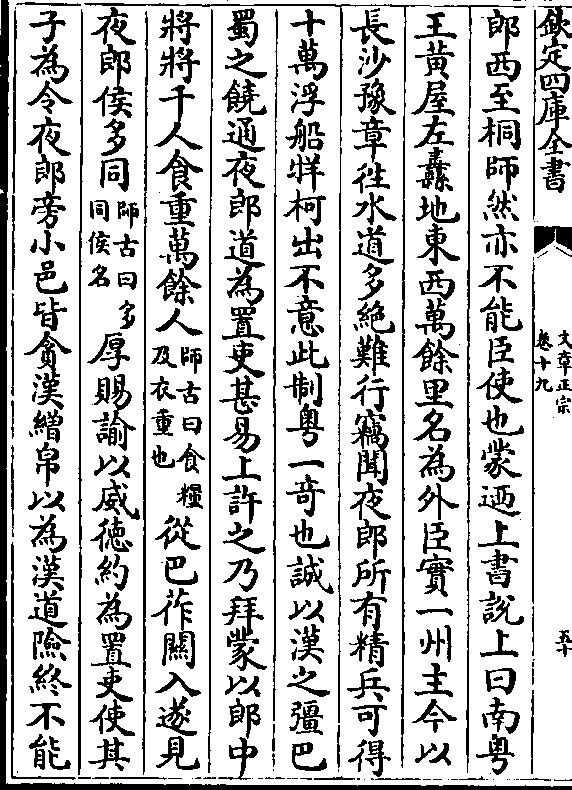 欽定四庫全書
文章正宗
卷十九
五十
郎西至桐師然亦不能臣使也蒙迺上書説上曰南粤
王黃屋左纛地東西萬餘里名為外臣實一州主今以
長沙豫章徃水道多絶難行竊聞夜郎所有精兵可得
十萬浮船牂柯出不意此制粤一竒也誠以漢之彊巴
蜀之饒通夜郎道為置吏甚易上許之乃拜蒙以郎中
將將千人食重萬餘人師古曰食糧及衣重也從巴莋關入遂見
夜郎侯多同師古曰多同侯名厚賜諭以威徳約為置吏使其
子為令夜郎旁小邑皆貪漢繒帛以為漢道險終不能